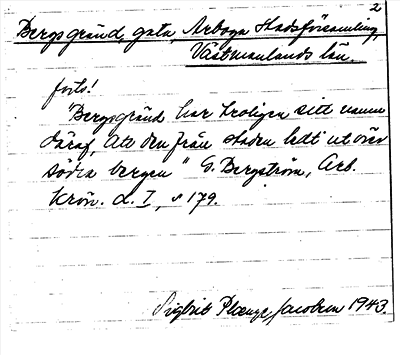 2
Bergsgränd, gata, Arboga Stadsförsamling,
Västmanlands län.
forts!
"Bergsgränd har troligen sitt namn
däraf, att den från staden ledt ut över
södra bergen" G. Bergström, Arb.
Krön. d. I, s 179.
Sigbrit Plænge Jacobson 1943.